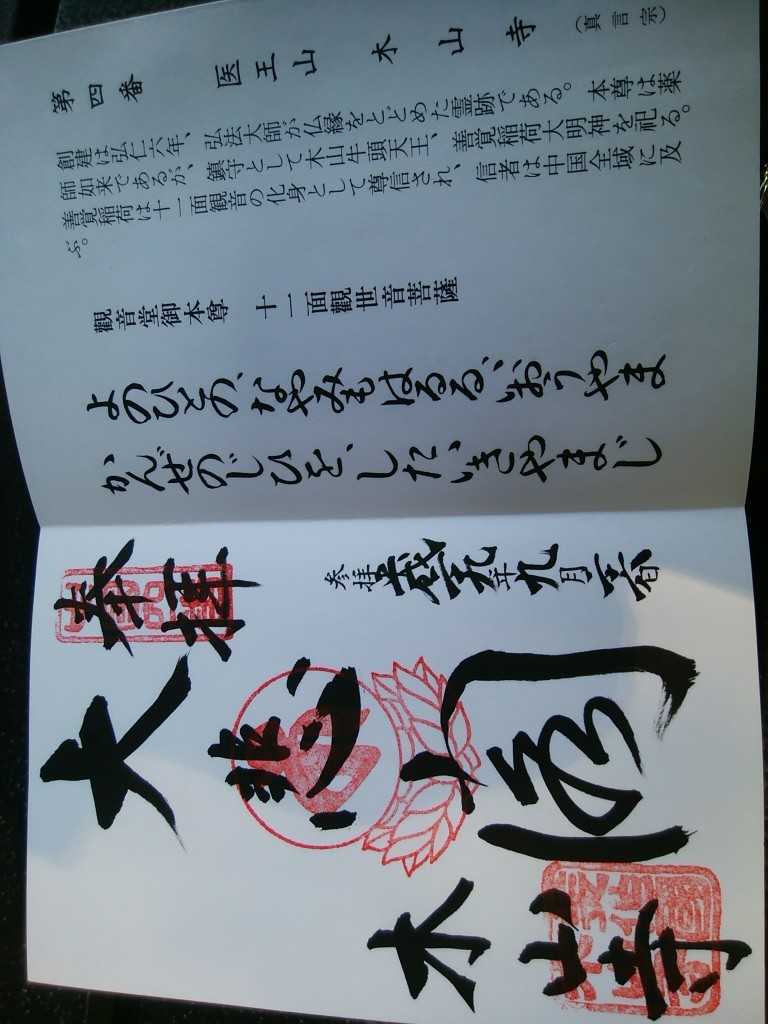 第四番　医王山　木山寺（真言宗）
創建は弘仁六年、弘法大師が仏縁をとどめた霊跡である。本尊は薬
師如来であるが、鎮守として木山牛頭天王、善覚稲荷大明神を祀る。
善覚稲荷は十一面観音の化身として尊信され、信者は中国全域に及
ぶ。
觀音堂御本尊　十一面觀世音菩薩
よのひとの、なやみもはるる、いおうやま
かんぜのじひを、したいきやまじ
奉拝
参拝 九年九月 日
大悲閣
木山寺